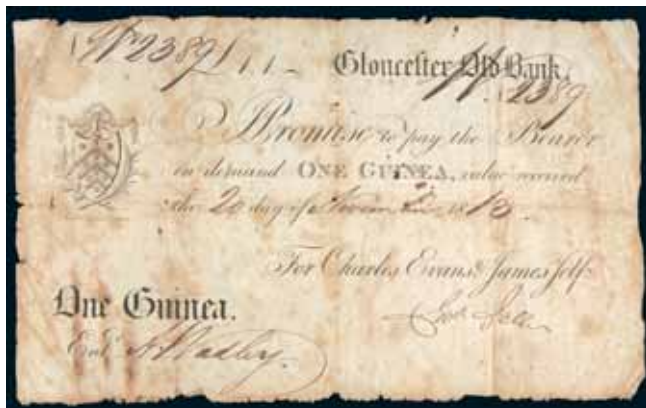 No 2389 £1,1,- Gloucester Old Bank,
No 2389
I Promise to pay the Bearer
on demand ONE GUINEA, value received
the 20 day of November 1813
For Charles Evans & James Jelf
One Guinea.
Jas Jelf
Entd A Wadley